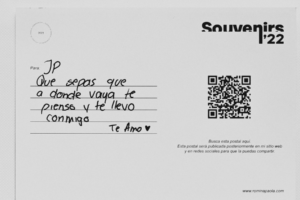 Souvenirs
'22
Para: JP
Que sepas que
a donde vaya te
pienso y te llevo
conmigo
Te Amo ♥
Busca esta postal aquí:
Esta postal será publicada posteriormente en mi sitio web
y en redes sociales para que la puedas compartir.